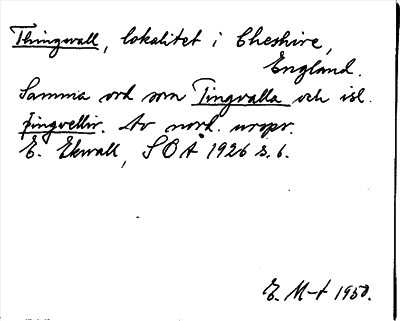 Thingwall, lokalitet i Cheshire,
England.
Samma ord som Tingvalla och isl.
þingvellir. Av nord. urspr.
E. Ekwall, SOÅ 1926 s. 6.
E. M-t 1950.